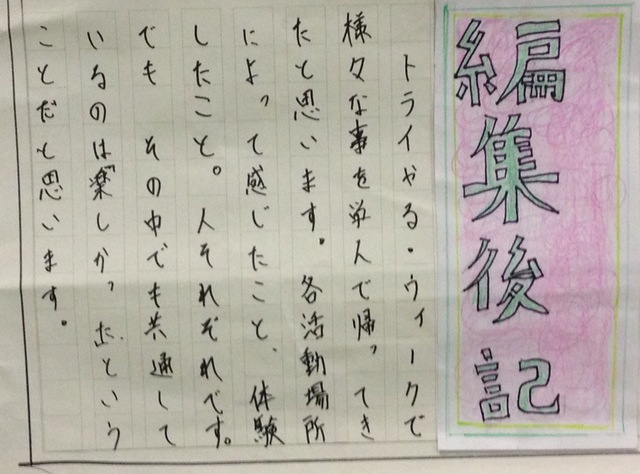 編集後記
トライやる・ウィークで
様々な事を学んで帰ってき
たと思います。各活動場所
によって感じたこと、体験
したこと。人それぞれです。
でも その中でも共通して
いるのは楽しかったという
ことだと思います。